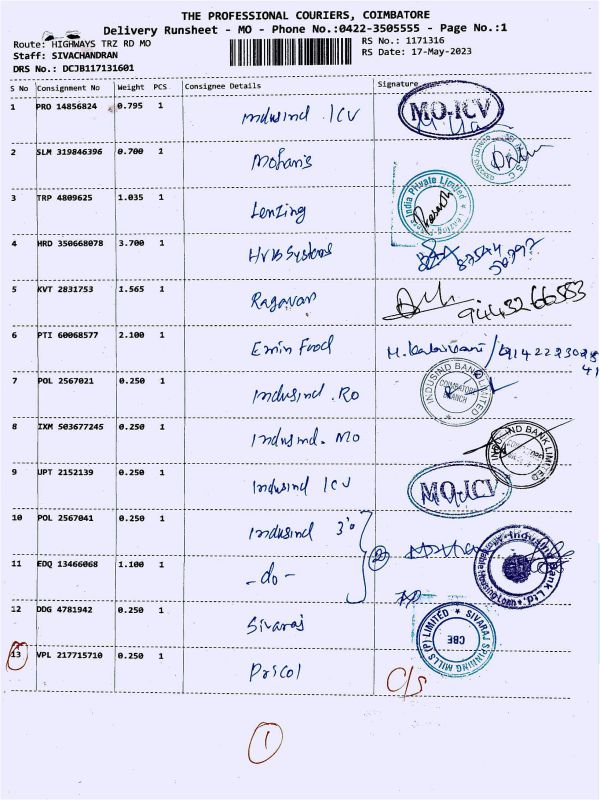 THE PROFESSIONAL COURIERS, COIMBATORE
Delivery Runsheet - MO - Phone No.:0422-3505555 - Page No.:1
Route: HIGHWAYS TRZ RD MO
RS No.: 1171316
Staff: SIVACHANDRAN
RS Date: 17-May-2023
DRS No.: DCJB117131601
S No Consignment No Weight PCS Consignee Details Signature
1 PRO 14856824 0.795 1 Indusind . ICV MO-ICV
2 SLM 319846396 0.700 1 Mohan's
3 TRP 4809625 1.035 1 Lenzing India Private Limited
4 HRD 350668078 3.700 1 HVB Systems
5 KVT 2831753 1.565 1 Ragavan 9443266583
6 PTI 60068577 2.100 1 Emin Food
7 POL 2567021 0.250 1 Indusind . RO INDUSIND BANK LIMITED COIMBATORE BRANCH
8 IXM 503677245 0.250 1 Indusind . MO INDUSIND BANK LIMITED
9 UPT 2152139 0.250 1 Indusind ICV MO-ICV
10 POL 2567041 0.250 1 Indusind
11 EDQ 13466068 1.100 1 - do - 2
12 DDG 4781942 0.250 1 Sivaraj SIVARAJ SPINNING MILLS (P) LIMITED CBE
13 VPL 217715710 0.250 1 Pricol C/S
1